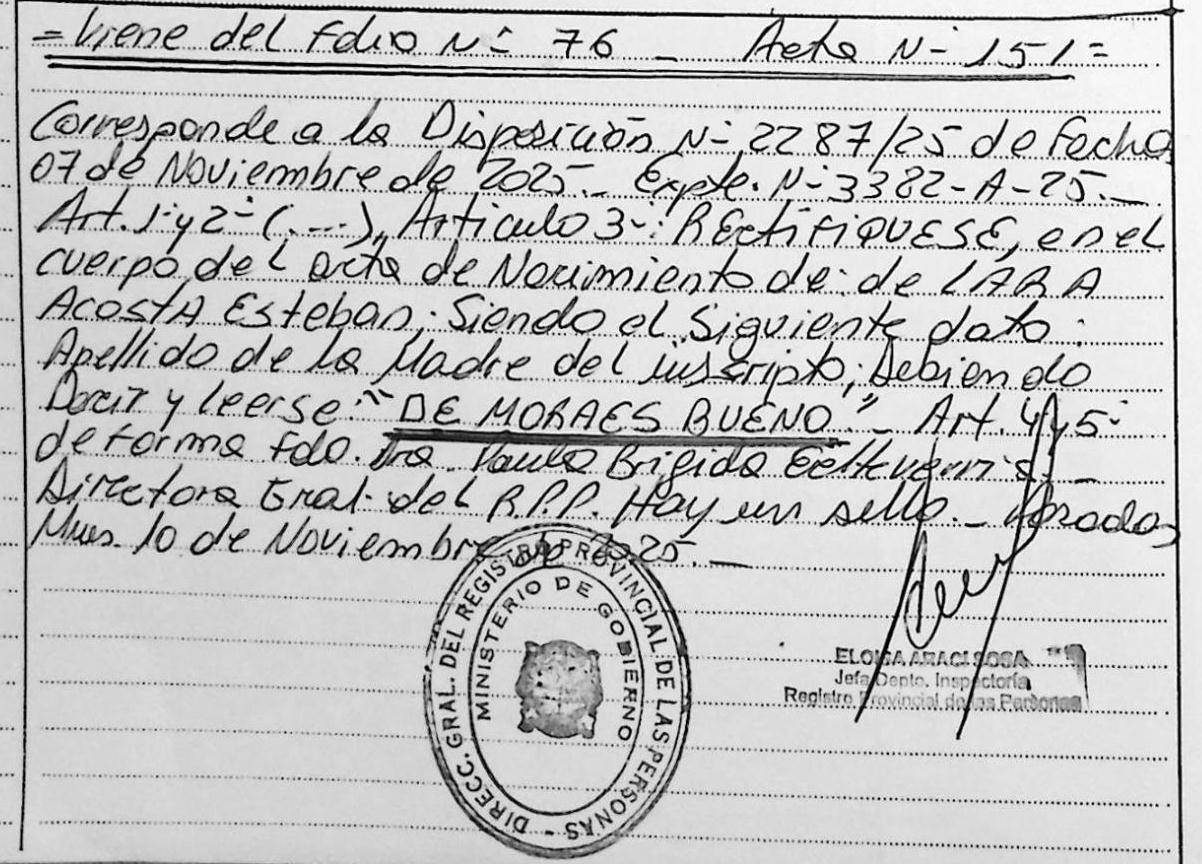 = Viene del Folio N- 76 _ Acta N- 151 =
Corresponde a la Disposición N- 2287/25 de Fecha
07 de Noviembre de 2025._ Expte. N- 3382-A-25._
Art. 1- y 2- (....), Artículo 3-: REctiFiQUESE, en el
cuerpo del acta de Nacimiento de: de LARA
AcostA Esteban; Siendo el Siguiente dato:
Apellido de la Madre del inscripto; Debiendo
Decir y leerse: "DE MORAES BUENO". Art. 4 y 5-
de forma Fdo. Dra. Paula Brigida
Directora Gral. del R.P.P. Hay un sello._ Posadas
Mnes. 10 de Noviembre de 2025._
DIRECC. GRAL. DEL REGISTRO PROVINCIAL DE LAS PERSONAS -
MINISTERIO DE GOBIERNO
ELOISA ARACI SOSA
Jefa Depto. Inspectoría
Registro Provincial de las Personas